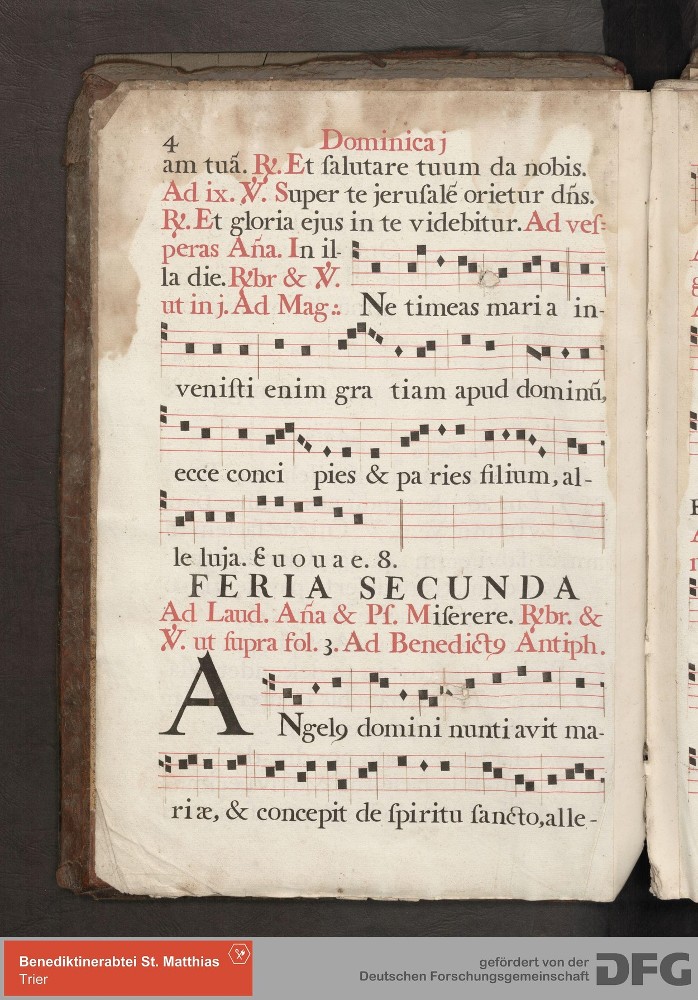 4 Dominica j
am tuã. ℟. Et ſalutare tuum da nobis.
Ad ix. ℣. Super te jeruſalẽ orietur dñs.
℟. Et gloria ejus in te videbitur. Ad veſ=
peras Aña. In il-
la die. ℟br & ℣.
ut in j. Ad Mag:. Ne timeas maria in-
veniſti enim gra tiam apud dominũ,
ecce conci pies & pa ries filium, al-
le luja. E u o u a e. 8.
FERIA SECUNDA
Ad Laud. Aña & Pſ. Miſerere. ℟br. &
℣. ut ſupra fol. 3. Ad Benedictꝯ Antiph.
ANgelꝯ domini nunti avit ma-
ri æ, & concepit de ſpiritu ſancto, alle-
Benediktinerabtei St. Matthias
Trier
gefördert von der
Deutschen Forschungsgemeinschaft
DFG